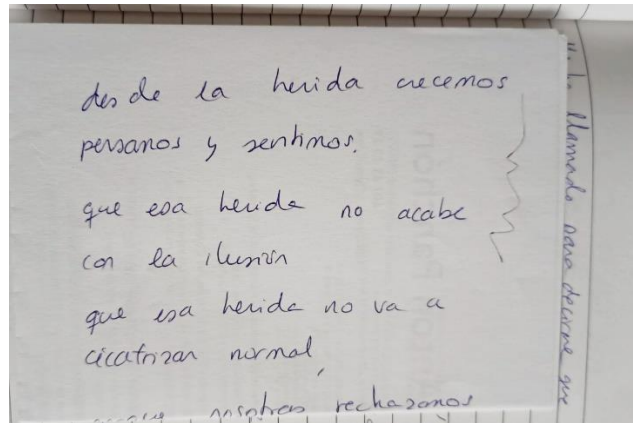 desde la herida crecemos
pensanos y sentimos.
que esa herida no acabe
con la ilusión
que esa herida no va a
cicatrizar normal,
nosotros rechazamos
llamado para decirme que